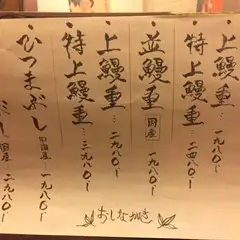 上鰻重…一九八〇ー
特上鰻重…二四八〇ー
並鰻重 国産 …一九八〇ー
上鰻重…二九八〇ー
特上鰻重…三九八〇ー
ひつまぶし 中国産 一九八〇ー
〃 国産 二九八〇ー
おしながき